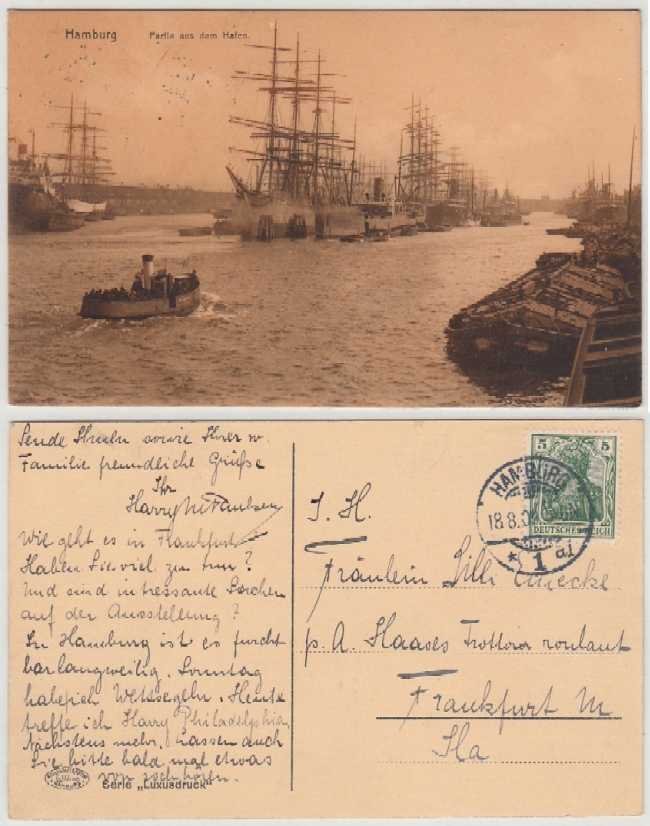 Hamburg Partie aus dem Hafen.
Sende Ihnen sowie Ihrer w.
Familie freundliche Grüße
Ihr
Harry
Wie geht es in Frankfurt
Haben Sie viel zu tun?
Und sind intressante Sachen
auf der Ausstellung?
In Hamburg ist es furcht
bar langweilig. Sonntag
habe ich Wettsegeln. Heute
treffe ich Harry Philadelphia
Nächstens mehr. Lassen auch
Sie bitte bald mal etwas
von sich hören.
Serie „Luxusdruck"
5 5
DEUTSCHES REICH
HAMBURG
18.8.0
* 1 a)
S. H.
Fräulein Lilli
p. A. Haases Trottoir roulant
Frankfurt M